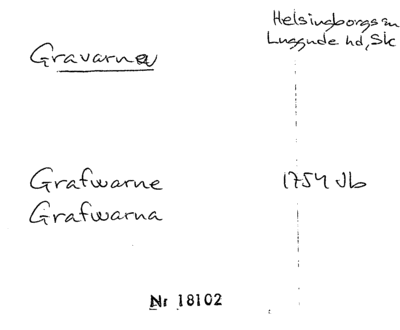 Helsingborgs sn
Luggude hd, Sk
Gravarna
Grafwarne 1754 Jb
Grafwarna
Nr 18102